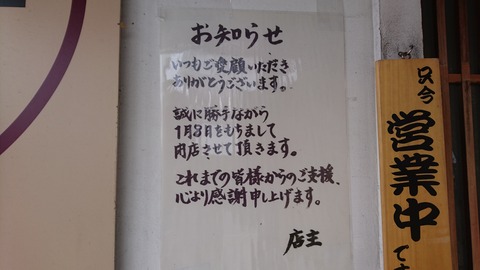 お知らせ
いつもご愛顧いただき
ありがとうございます。
誠に勝手ながら
1月8日をもちまして
閉店させて頂きます。
これまでの皆様からのご支援、
心より感謝申し上げます。
店主
只今
営業中
です